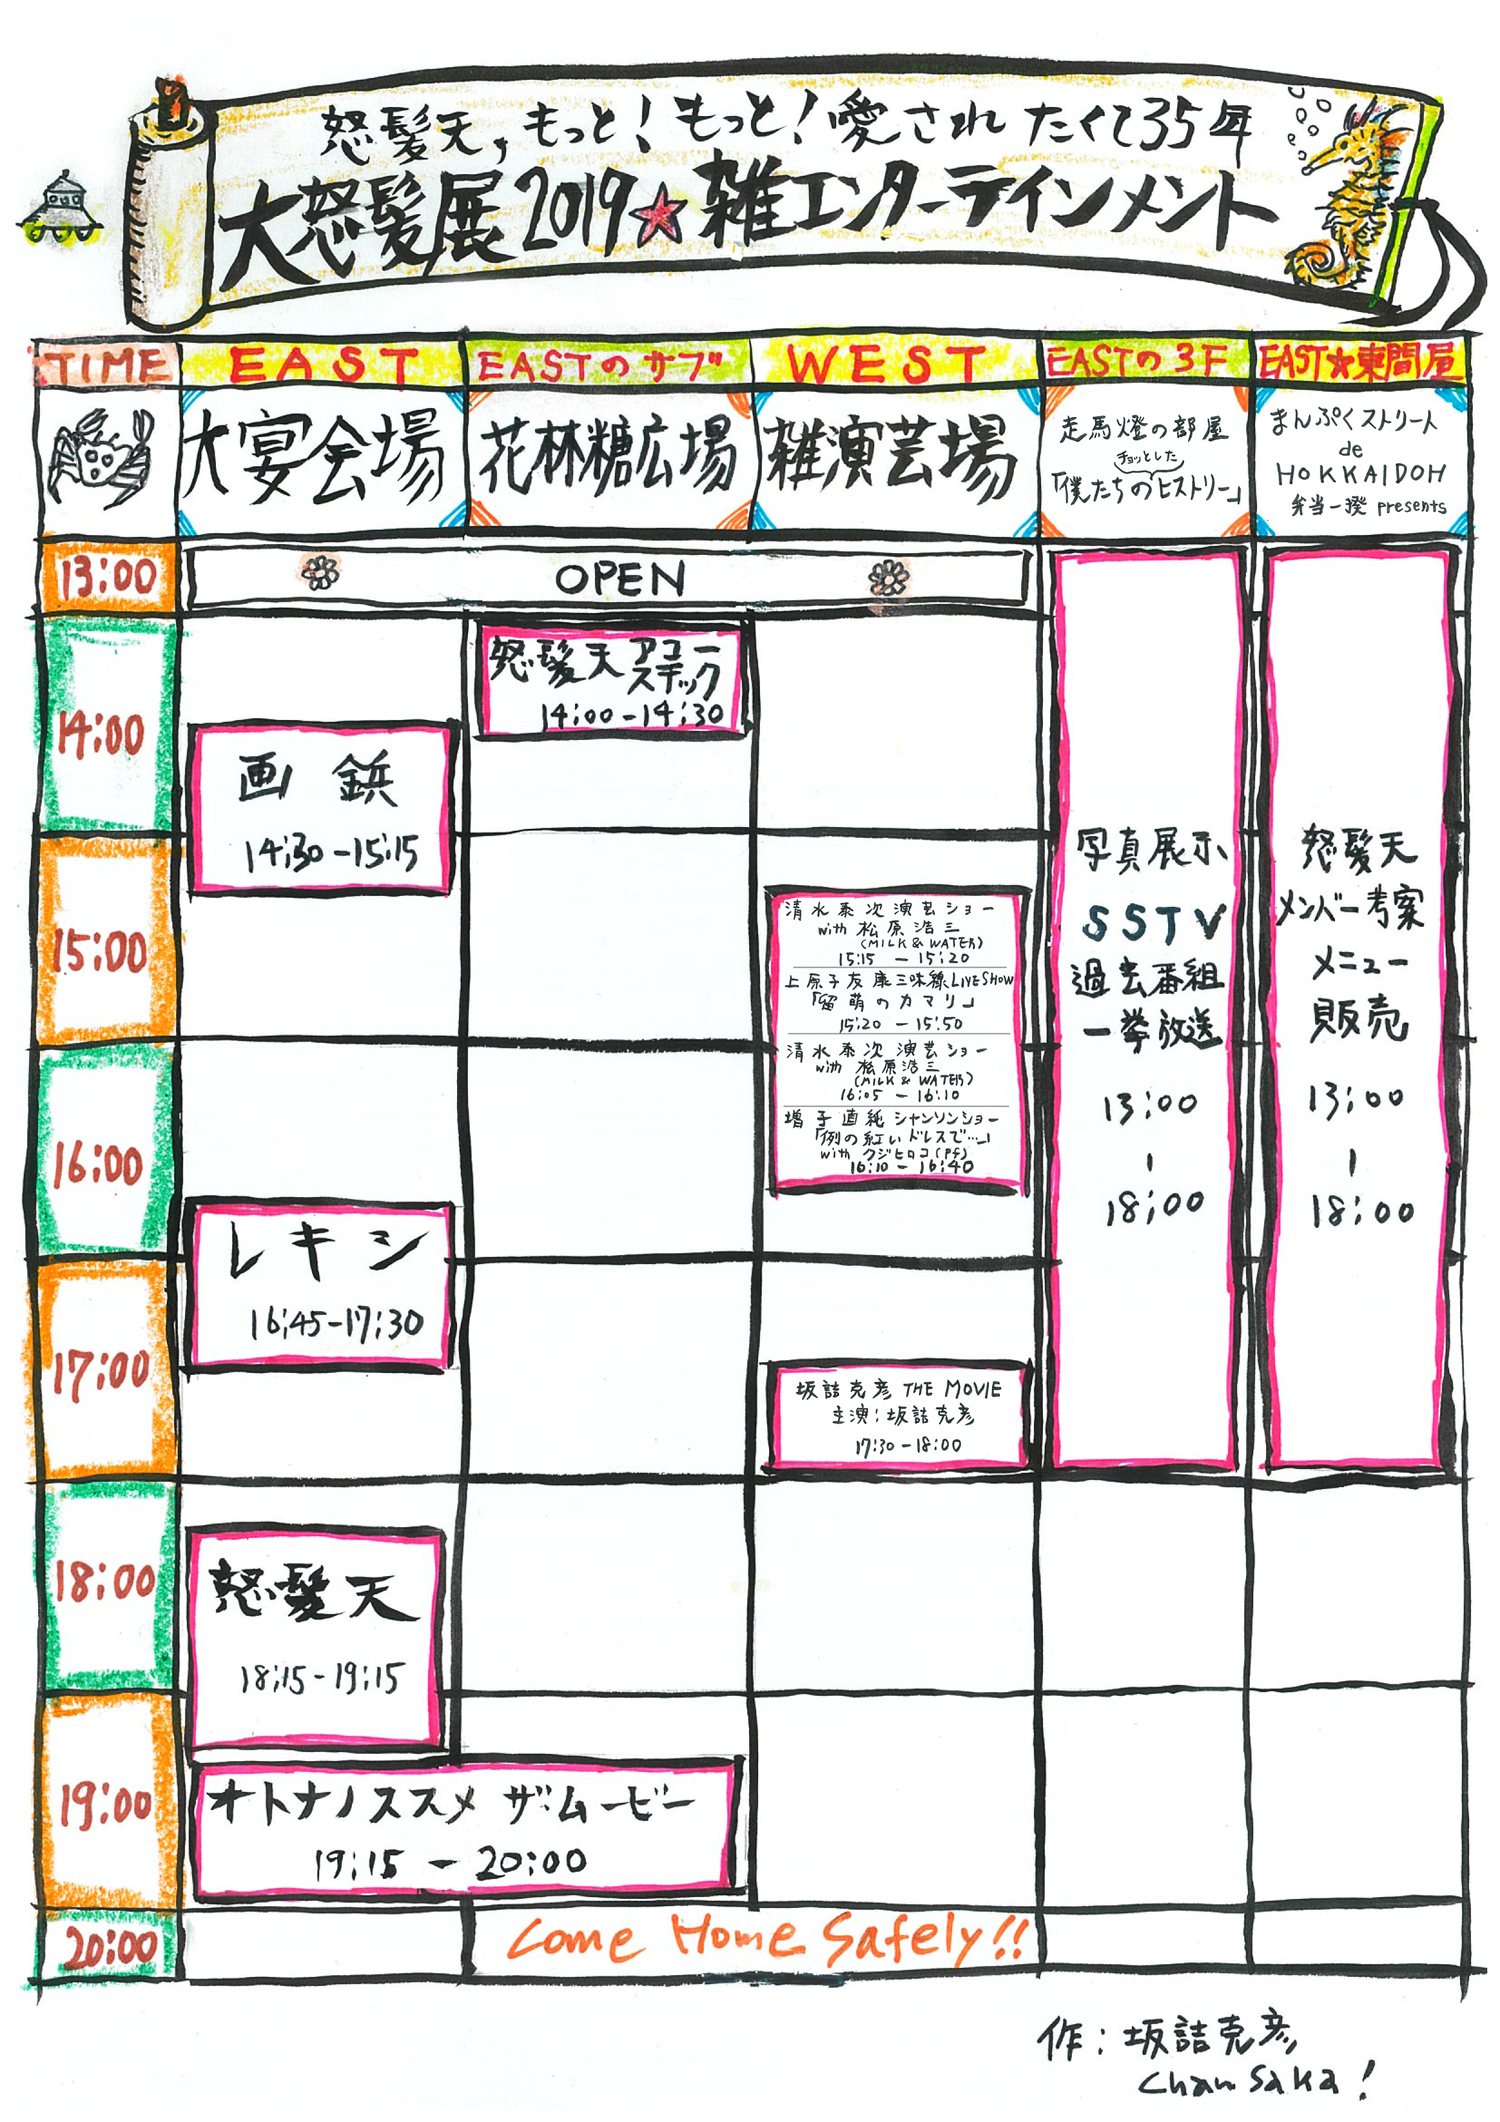 怒髪天,もっと!もっと!愛されたくて35年
大怒髪展2019★雑エンターテインメント
TIME
EAST
EASTのサブ
WEST
EASTの3F
EAST★東間屋
大宴会場
花林糖広場
雑演芸場
走馬燈の部屋
チョッとした
「僕たちのヒストリー」
まんぷくストリート
de
HOKKAIDOH
弁当一揆 presents
13:00
OPEN
14:00
怒髪天アコースチック
14:00-14:30
画鋲
14:30-15:15
15:00
清水泰次演芸ショー
with 松原浩三
(MILK & WATER)
15:15 - 15:20
上原子友康三味線LIVE SHOW
「留萌のカマリ」
15:20 - 15:50
清水泰次演芸ショー
with 松原浩三
(MILK & WATER)
16:05 - 16:10
増子直純シャンソンショー
「例の紅いドレスで…」
with クジヒロコ(Pf)
16:10 - 16:40
写真展示
SSTV
過去番組
一挙放送
13:00
-
18:00
怒髪天
メンバー考案
メニュー
販売
13:00
-
18:00
16:00
レキシ
16:45-17:30
17:00
坂詰克彦 THE MOVIE
主演:坂詰克彦
17:30-18:00
18:00
怒髪天
18:15-19:15
19:00
オトナノススメ ザ・ムービー
19:15 - 20:00
20:00
Come Home Safely!!
作:坂詰克彦
Chan Saka!